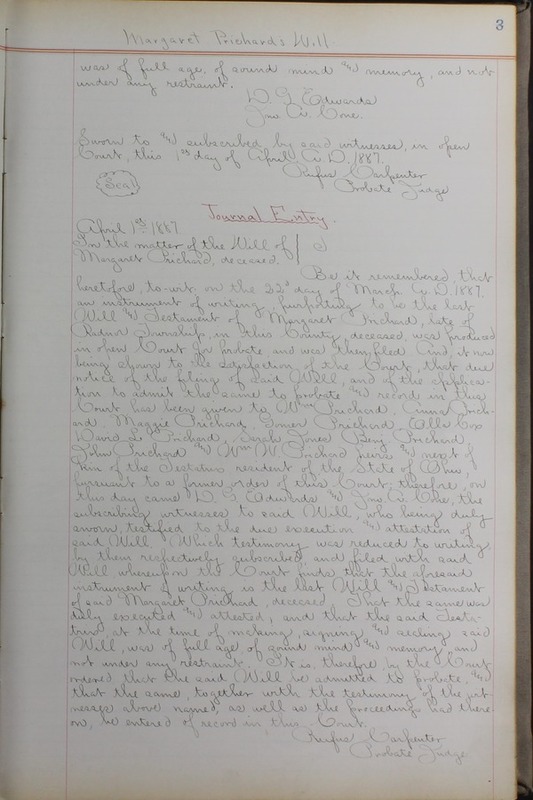 3
Margaret Prichard's Will.
was of full age, of sound mind & memory, and not
under any restraint.
D. G. Edwards
Jno. A. Cone.
Sworn to & subscribed by said witnesses, in open
Court, this 1st day of April A.D. 1887.
Rufus Carpenter
Probate Judge
Seal
Journal Entry.
April 1st 1887
In the matter of the Will of
Margaret Prichard, deceased.
Be it remembered, that
heretofore, to-wit on the 22d day of March A.D. 1887.
an instrument of writing purporting to be the last
Will & Testament of Margaret Prichard, late of
Radnor Township, in this County, deceased, was produced
in open Court for probate, and was then filed. And, it now
being shown to the satisfaction of the Court, that due
notice of the filing of said Will, and of the applica-
tion to admit the same to probate & record in this
Court, has been given to Wm Prichard, Anna Prich-
ard, Maggie Prichard, Gomer Prichard, Alls Cox
David Prichard, Sarah Jones Benj. Prichard
John Prichard & Wm W. Prichard heirs & next of
Kin of the Testatrix resident of the State of Ohio,
pursuant to a former order of this Court; therefore, on
this day came D. G. Edwards & Jno. A. Cone, the
subscribing witnesses to said Will, who being duly
sworn, testified to the due execution & attestation of
said Will. Which testimony was reduced to writing,
by them respectively subscribed, and filed with said
Will, whereupon the Court finds that the aforesaid
instrument of writing is the last Will & Testament
of said Margaret Prichard, deceased. That the same was
duly executed & attested, and that the said Testa-
trix, at the time of making, signing & sealing said
Will, was of full age of sound mind & memory, and
not under any restraint. It is, therefore, by the Court
ordered that the said Will be admitted to probate &
that the same, together with the testimony of the wit-
nesses above named, as well as the proceedings had there
on, be entered of record in this Court.
Rufus Carpenter
Probate Judge